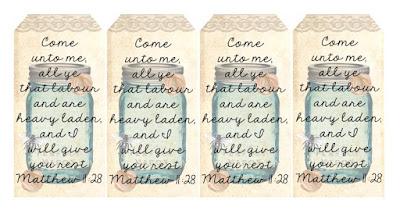 Come
unto me,
all ye
that labour
and are
heavy laden,
and I
will give
you rest
Matthew 11:28
Come
unto me,
all ye
that labour
and are
heavy laden,
and I
will give
you rest
Matthew 11:28
Come
unto me,
all ye
that labour
and are
heavy laden,
and I
will give
you rest
Matthew 11:28
Come
unto me,
all ye
that labour
and are
heavy laden,
and I
will give
you rest
Matthew 11:28